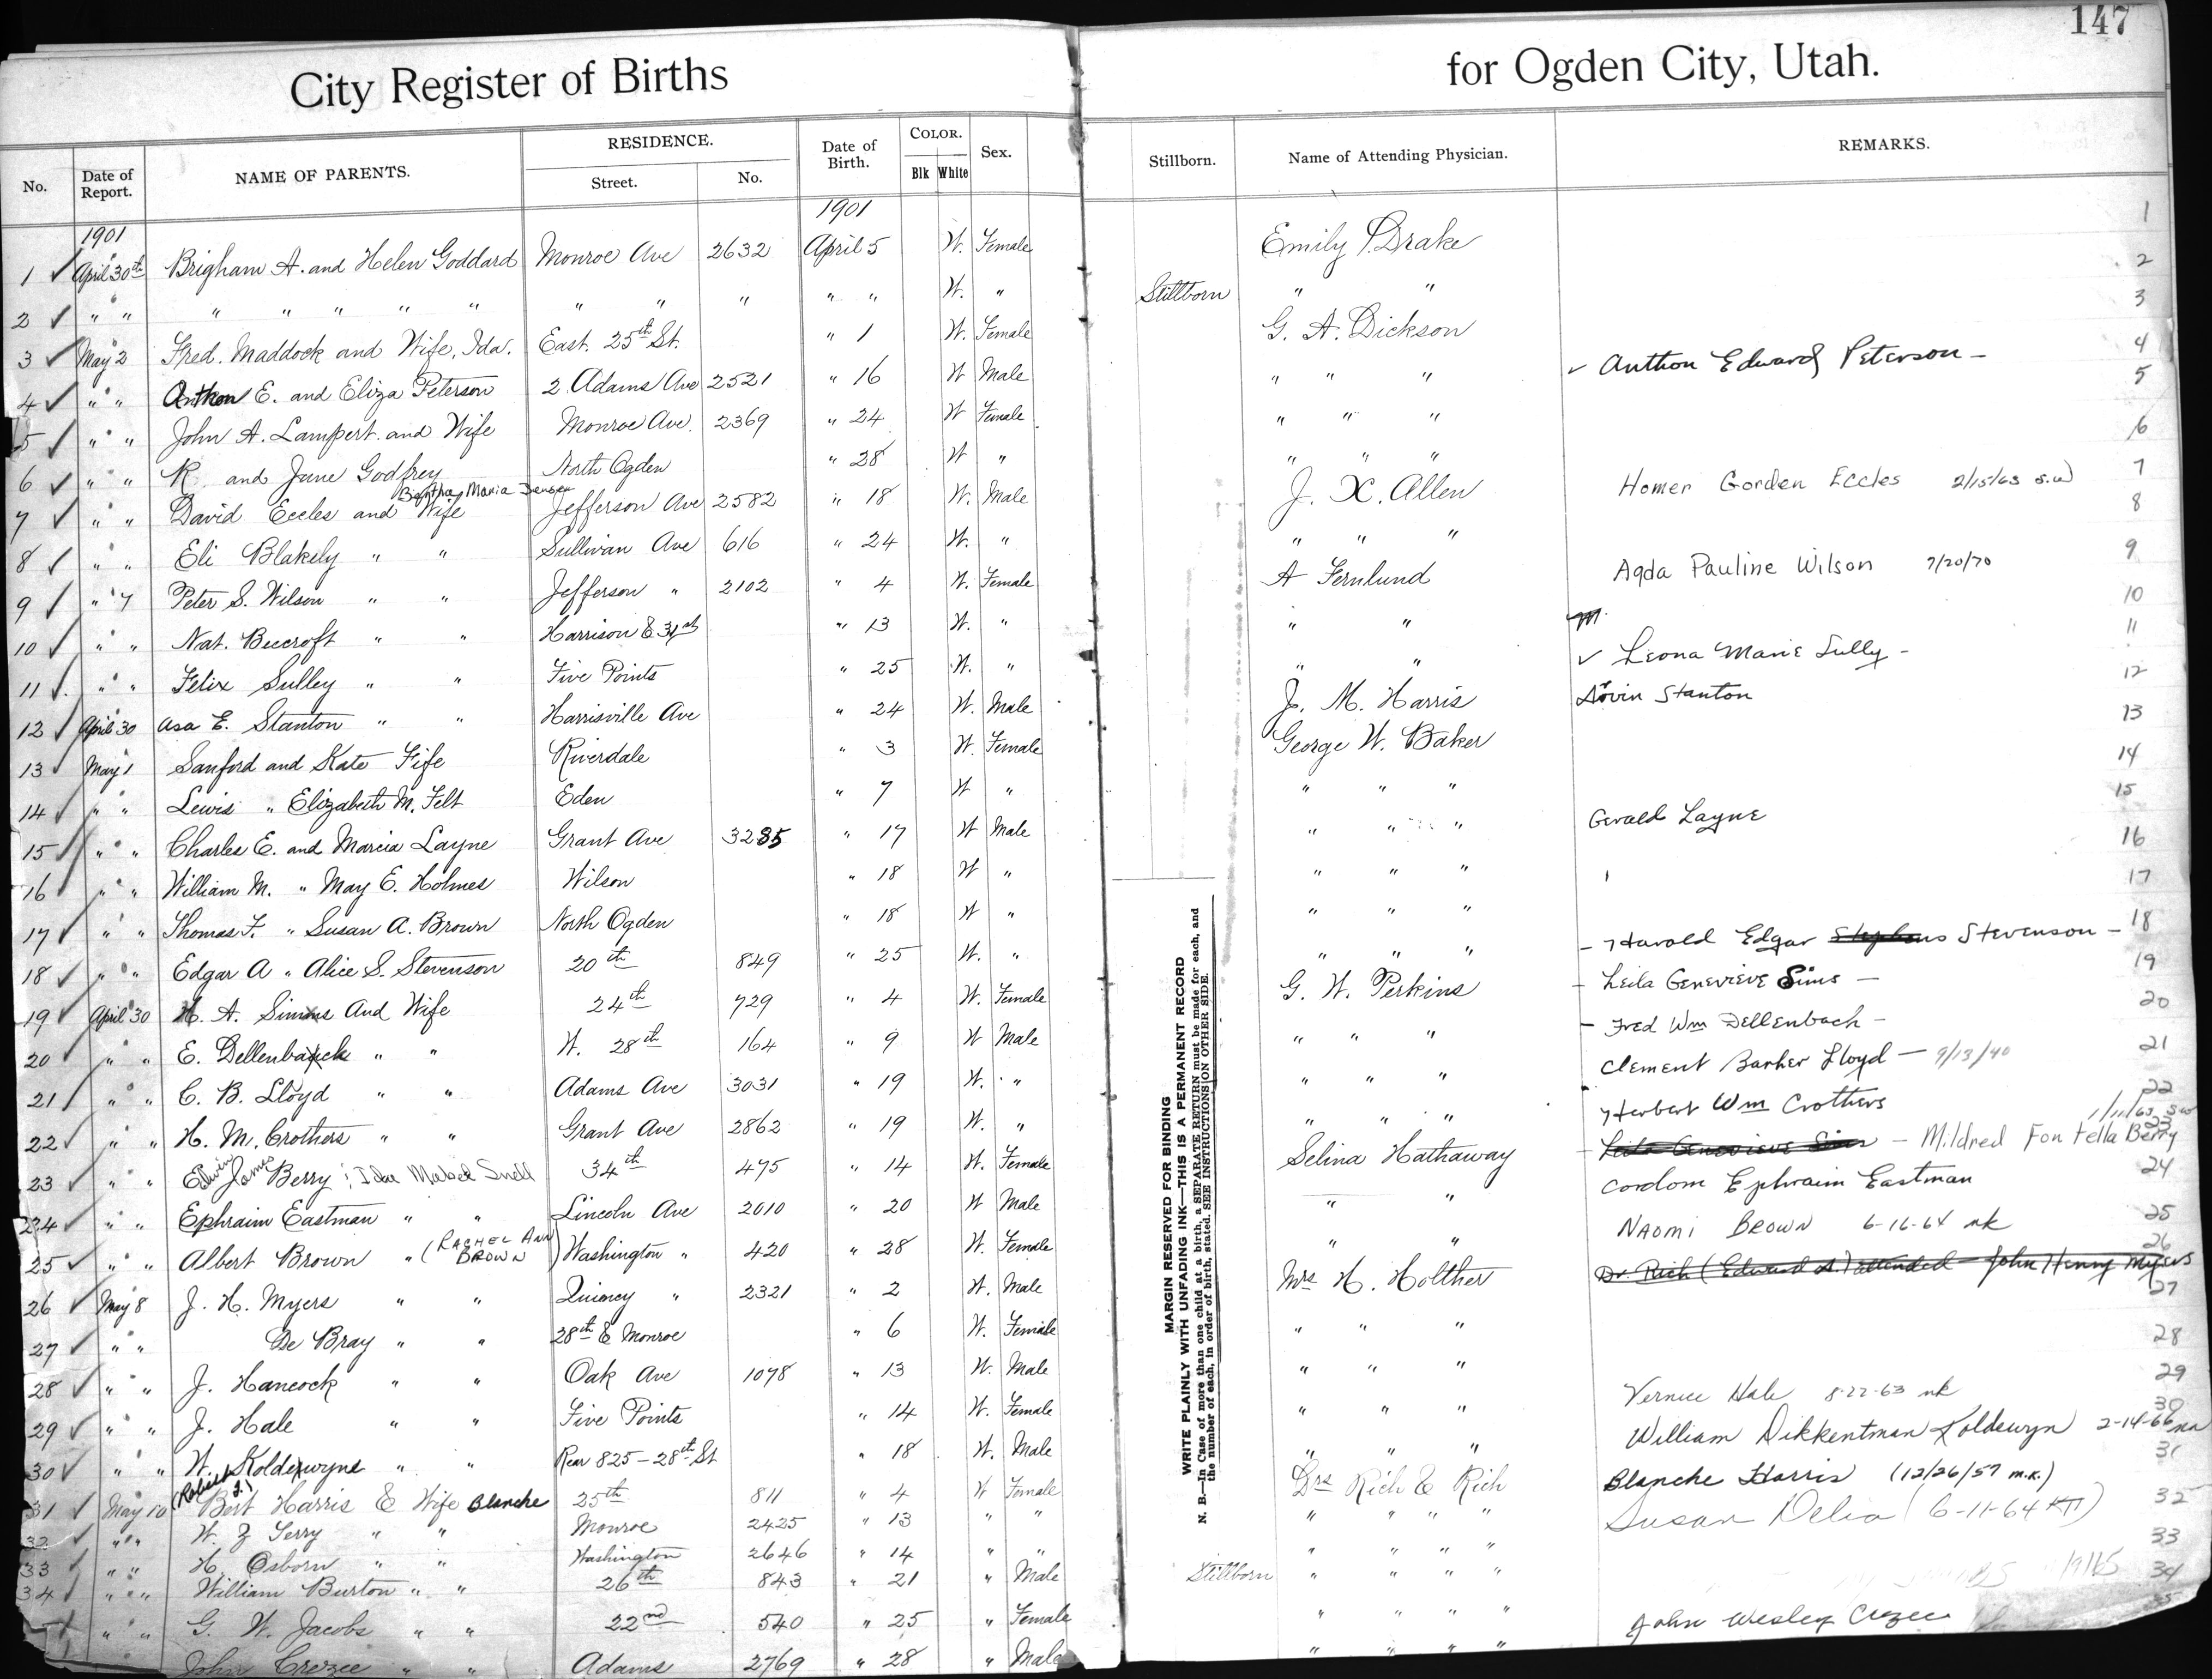 147
City Register of Births for Ogden City, Utah.
No. Date of Report. NAME OF PARENTS. RESIDENCE. Street. No. Date of Birth. COLOR. Blk White Sex. Stillborn. Name of Attending Physician. REMARKS.
1901 1901
1 ✓ April 30th Brigham A. and Helen Goddard Monroe Ave 2632 April 5 W. Female Emily Drake 1
2 ✓ " " " " " " " " " " " " W. " Stillborn " " 2
3 ✓ May 2 Fred. Maddock and Wife, Ida. East. 25th St. " 1 W. Female G. A. Dickson 3
4 ✓ " " Anthon E. and Eliza Peterson 2 Adams Ave 2521 " 16 W Male " " " ✓ Anthon Edward Peterson - 4
5 ✓ " " John A. Lampert and Wife Monroe Ave. 2369 " 24 W Female " " " 5
6 ✓ " " R. and Jane Godfrey North Ogden " 28 W " " " " 6
7 ✓ " " David Eccles and Wife Bertha Maria Jensen Jefferson Ave 2582 " 18 W. Male J. X. Allen Homer Gorden Eccles 2/15/63 s.w 7
8 ✓ " " Eli Blakely " " Sullivan Ave 616 " 24 W. " " " " 8
9 ✓ " 7 Peter S. Wilson " " Jefferson " 2102 " 4 W. Female A Fernlund Agda Pauline Wilson 7/20/70 9
10 ✓ " " Nat. Becroft " " Harrison & 31st " 13 W. " " " M. 10
11 ✓ " " Felix Sulley " " Five Points " 25 W. " " " ✓ Leona Marie Sully - 11
12 ✓ April 30 Asa E. Stanton " " Harrisville Ave " 24 W. Male J. M. Harris Stanton 12
13 ✓ May 1 Sanford and Kate Fife Riverdale " 3 W. Female George W. Baker 13
14 ✓ " " Lewis " Elizabeth M. Felt Eden " 7 W " " " " 14
15 ✓ " " Charles E. and Marcia Layne Grant Ave 3285 " 17 W Male " " " Gerald Layne 15
16 ✓ " " William M. " May E. Holmes Wilson " 18 W " " " " 16
17 ✓ " " Thomas F. " Susan A. Brown North Ogden " 18 W " " " " 17
18 ✓ " " Edgar A " Alice S. Stevenson 20th 849 " 25 W. " " " " - Harold Edgar Stephens Stevenson - 18
19 ✓ April 30 H. A. Simms And Wife 24th 729 " 4 W. Female G. W. Perkins - Leila Genevieve Sims - 19
20 ✓ " " E. Dellenback " " W. 28th 164 " 9 W Male " " " - Fred Wm Dellenbach - 20
21 ✓ " " C. B. Lloyd " " Adams Ave 3031 " 19 W. " " " " Clement Barker Lloyd - 9/13/40 21
22 ✓ " " H. M. Crothers " " Grant Ave 2862 " 19 W. " " " " Herbert Wm Crothers 22
23 ✓ " " Edwin James Berry ; Ida Mabel Snell 34th 475 " 14 W. Female Selina Hathaway - Leila Genevieve Sims - Mildred Fontella Berry 1/11/63 23
24 ✓ " " Ephraim Eastman " " Lincoln Ave 2010 " 20 W Male " " Cordom Ephraim Eastman 24
25 ✓ " " Albert Brown " (RACHEL ANN BROWN) Washington " 420 " 28 W. Female " " NAOMI BROWN 6-16-64 nk 25
26 ✓ May 8 J. H. Myers " " Quincy " 2321 " 2 W. Male Mrs H. Holther Dr. Rich (Edward A.) attended John Henry Myers 26
27 ✓ " " De Bray " " 28th & Monroe " 6 W. Female " " " 27
28 ✓ " " J. Hancock " " Oak Ave 1078 " 13 W. Male " " " 28
29 ✓ " " J. Hale " " Five Points " 14 W. Female " " " Vernice Hale 8-22-63 nk 29
30 ✓ " " W. Koldewyne " " Rear 825 - 28th St " 18 W. Male " " " William Dikkentman Koldewyn 2-14-66 30
31 ✓ May 10 (Robert L.) Bert Harris & Wife Blanche 25th 811 " 4 W Female Drs Rich & Rich Blanche Harris (12/26/57 m.k.) 31
32 ✓ " " W. Z Terry " " Monroe 2425 " 13 " " " " " " Susan Delia (6-11-64 KTI) 32
33 ✓ " " H. Osborn " " Washington 2646 " 14 " " " " " " 33
34 ✓ " " William Burton " " 26th 843 " 21 " Male Stillborn " " " " 34
" " G. W. Jacobs " " 22nd 540 " 25 " Female " " " " 35
John Crezee " " Adams 2769 " 28 " Male " " " " John Wesley Crezee
MARGIN RESERVED FOR BINDING
WRITE PLAINLY WITH UNFADING INK—THIS IS A PERMANENT RECORD
N. B.—In Case of more than one child at a birth, a SEPARATE RETURN must be made for each, and
the number of each, in order of birth, stated. SEE INSTRUCTIONS ON OTHER SIDE.